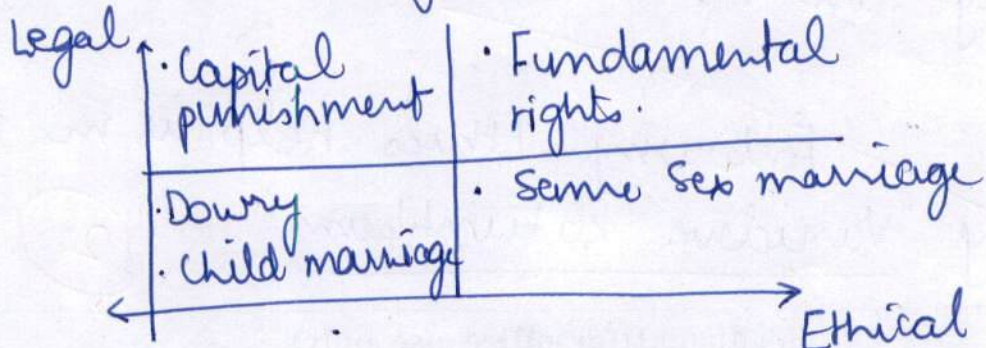 Legal
· Capital
punishment
· Fundamental
rights.
· Dowry
· Child marriage
· Same Sex marriage
Ethical